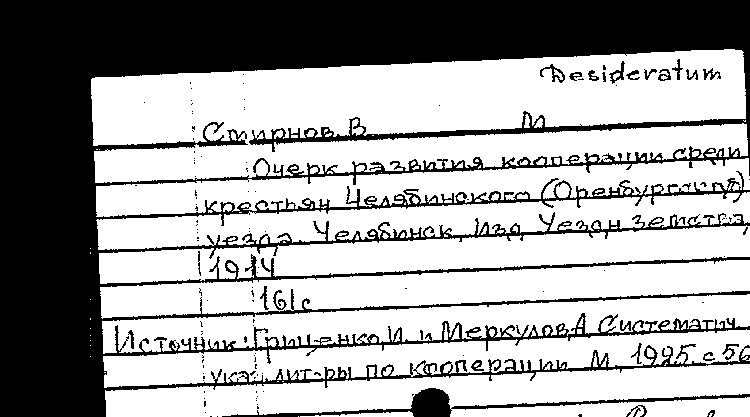 Desideratum
Смирнов, В. М
Очерк развития кооперации среди
крестьян Челябинского (Оренбургской)
уезда. Челябинск, Изд. Уездн. Земства,
1914
161с
Источник: Гриценко, И. и Меркулов, А. Систематич.
указ. лит-ры по кооперации М., 1925. с 56